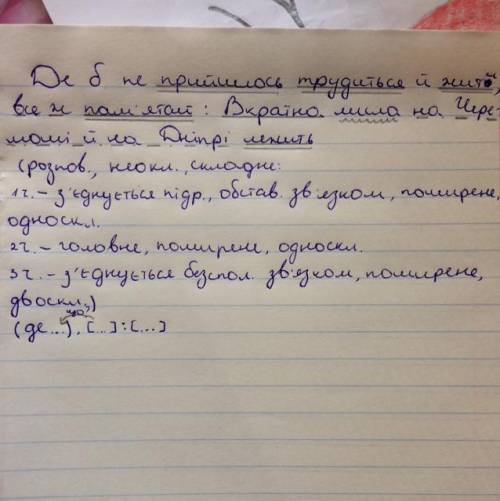 Де б не прийшлось трудиться й жить,
все ж пам'ятай: Вкраїна мила на Чере-
моші й на Дніпрі лежить
(розпов., неокл., складне:
1ч. – з'єднується підр., обстав. зв'язком, поширене,
односкл.
2ч. – головне, поширене, односкл.
3ч. – з'єднується безспол. зв'язком, поширене,
двоскл.)
(де...), [...]:[...]